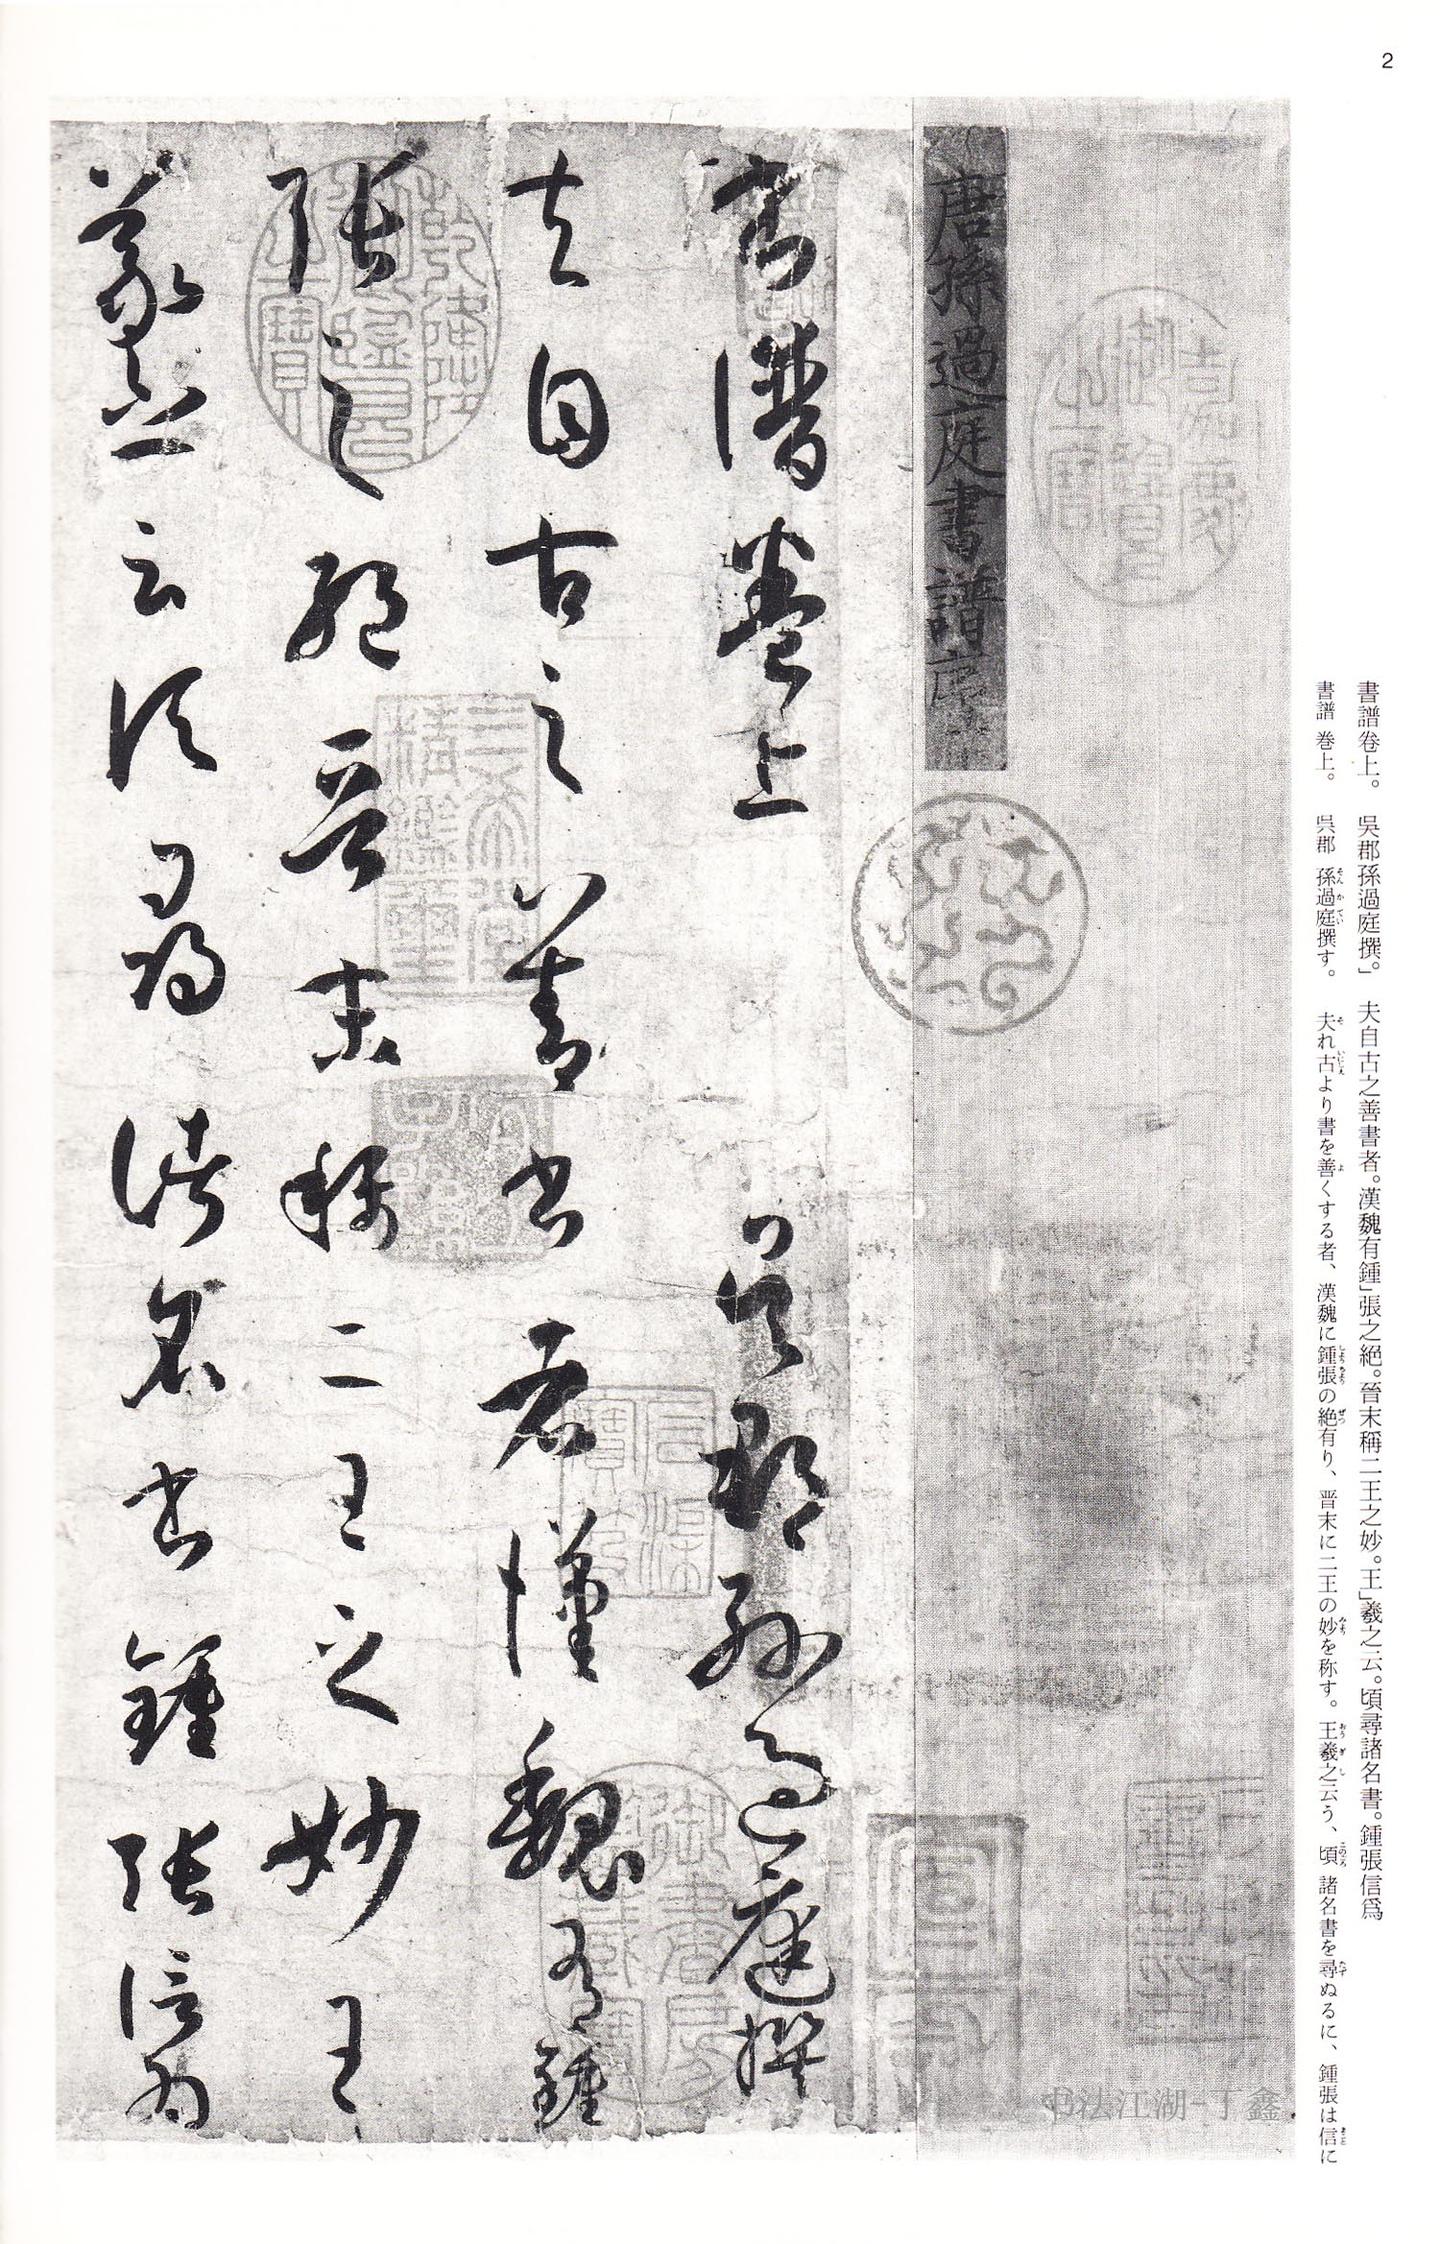 2
書譜卷上。　吳郡孫過庭撰。」　夫自古之善書者。漢魏有鍾」張之絕。晉末稱二王之妙。王」羲之云。頃尋諸名書。鍾張信爲
書譜　巻上。　呉郡　孫過庭撰す。　夫れ古より書を善くする者、漢魏に鍾張の絶有り、晋末に二王の妙を称す。王羲之云う、頃　諸名書を尋ぬるに、鍾張は信に
唐孫過庭書譜序
書譜卷上　吳郡孫過庭撰
夫自古之善書者漢魏有鍾
張之絕晉末稱二王之妙王
羲之云頃尋諸名書鍾張信爲
乾隆御覽之寶
三希堂精鑑璽
宜子孫
御書房鑒藏寶
书法江湖-丁鑫